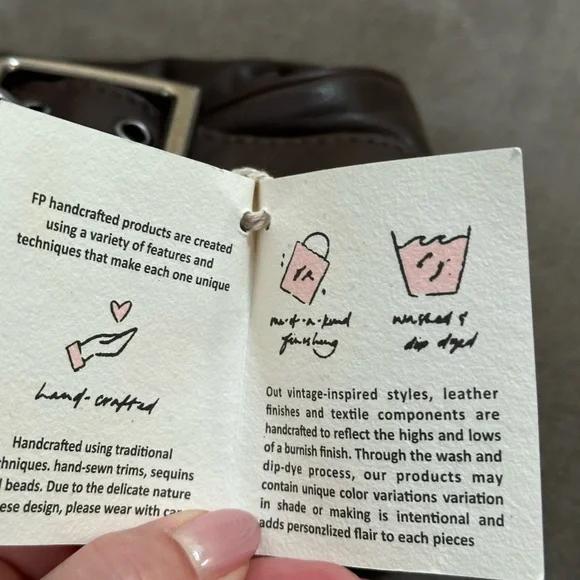 FP handcrafted products are created
using a variety of features and
techniques that make each one unique
hand-crafted
Handcrafted using traditional
chniques. hand-sewn trims, sequins
beads. Due to the delicate nature
ese design, please wear with car
one-of-a-kind
finishing
washed &
dip dyed
Out vintage-inspired styles, leather
finishes and textile components are
handcrafted to reflect the highs and lows
of a burnish finish. Through the wash and
dip-dye process, our products may
contain unique color variations variation
in shade or making is intentional and
adds personzlized flair to each pieces